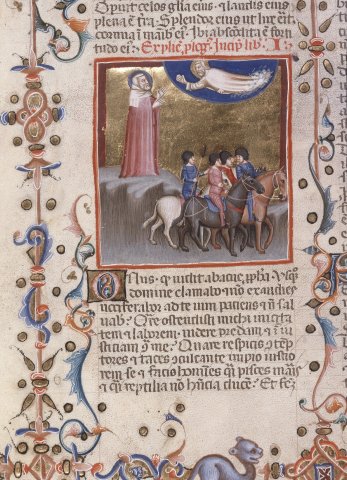 Opuit celos glia eius et laudis eius
plena e tra Splendor eius ut lux erit
cornua i manib ei Ibi abscodita e forti
tudo ei Explic plog Incip lib I
Onus q uidit abacuc ppha Usqq
domine clamabo et nō exaudies
uociferabor ad te uim patiens et nō sal
uab Qre ostendisti michi iniqita
tem et laborem uidere predam et iniu
sticiam 9tra me Quare respicis 9tep
tores et taces 9culcante impio iustio
rem se et facies homīes q̄ pisces maris
et q̄ reptilia nō hn̄cia ducē Et fec